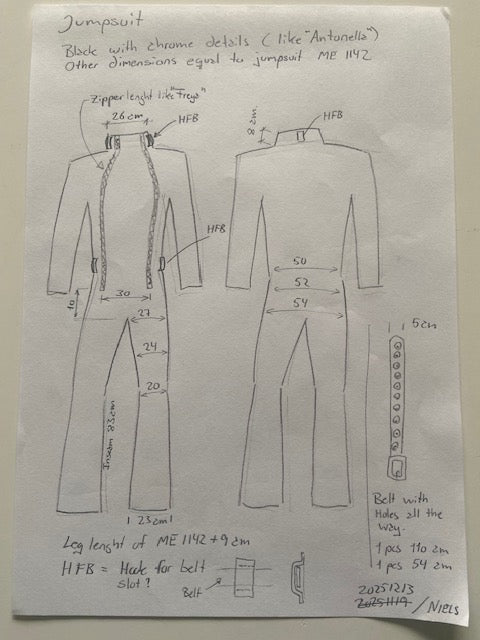 Jumpsuit
Black with chrome details (like "Antonella")
Other dimensions equal to jumpsuit ME 1142
Zipper lenght like "Freya"
26 cm
HFB
8 cm
HFB
HFB
30
10
27
24
20
Inseam 83cm
23cm
50
52
54
5 cm
Leg lenght of ME 1142 + 9 cm
HFB = Hook for belt
slot?
Belt
Belt with
Holes all the
way.
1 pcs 110 cm
1 pcs 54 cm
20251213
20251119 / NIELS